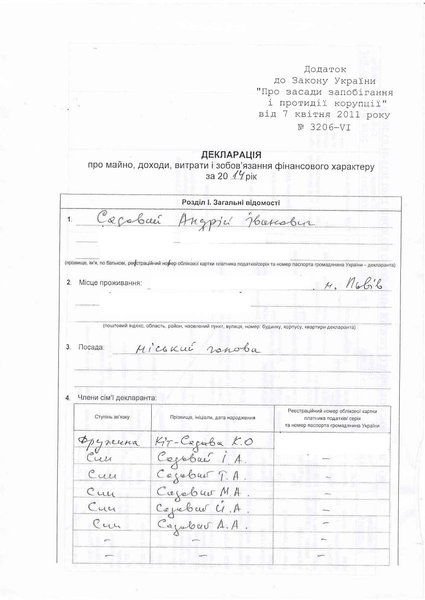 Додаток
до Закону України
"Про засади запобігання
і протидії корупції"
від 7 квітня 2011 року
№ 3206-VI
ДЕКЛАРАЦІЯ
про майно, доходи, витрати і зобов'язання фінансового характеру
за 2014 рік
Розділ І. Загальні відомості
1. Садовий Андрій Іванович
(прізвище, ім'я, по батькові, реєстраційний номер облікової картки платника податків/серія та номер паспорта громадянина України - декларанта)
2. Місце проживання: м. Львів
(поштовий індекс, область, район, населений пункт, вулиця, номер: будинку, корпусу, квартири декларанта)
3. Посада: міський голова
4. Члени сім'ї декларанта:
Ступінь зв'язку Прізвище, ініціали, дата народження Реєстраційний номер облікової картки
платника податків/ серія
та номер паспорта громадянина України
Дружина Кіт-Садова К.О
Син Садовий І.А. –
Син Садовий Т.А. –
Син Садовий М.А. –
Син Садовий Й.А. –
Син Садовий А.А. –
– – –
– – –